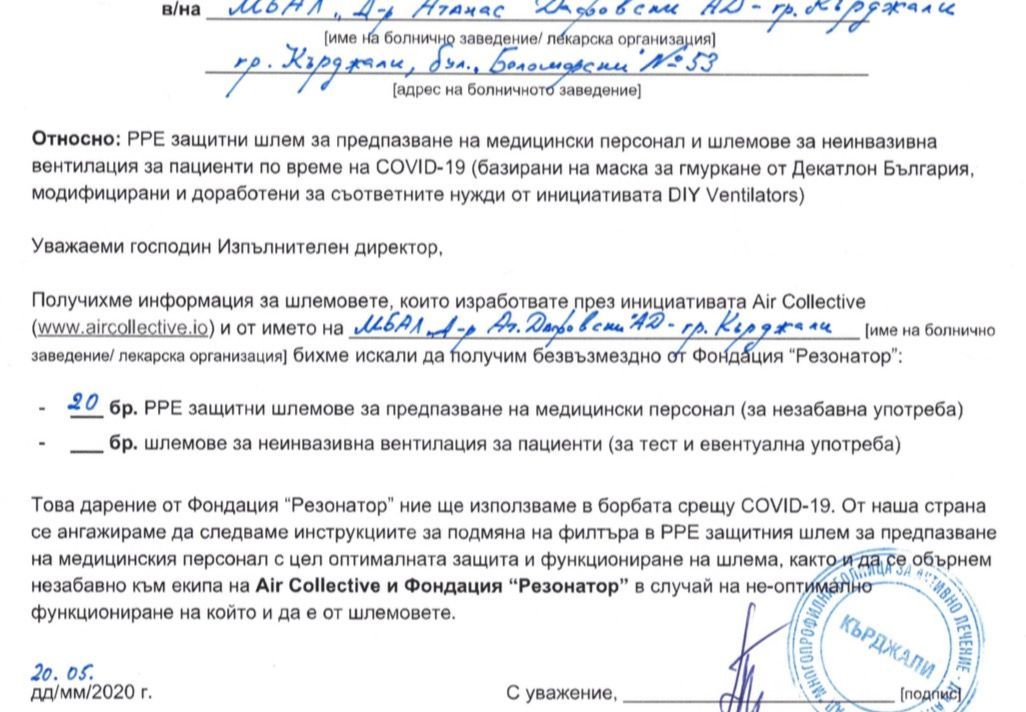 в/на МБАЛ „Д-р Атанас Дафовски" АД - гр. Кърджали
[име на болнично заведение/ лекарска организация]
гр. Кърджали, бул. „Беломорски" № 53
[адрес на болничното заведение]
Относно: PPE защитни шлем за предпазване на медицински персонал и шлемове за неинвазивна
вентилация за пациенти по време на COVID-19 (базирани на маска за гмуркане от Декатлон България,
модифицирани и доработени за съответните нужди от инициативата DIY Ventilators)
Уважаеми господин Изпълнителен директор,
Получихме информация за шлемовете, които изработвате през инициативата Air Collective
(www.aircollective.io) и от името на МБАЛ „Д-р Ат. Дафовски" АД - гр. Кърджали [име на болнично
заведение/ лекарска организация] бихме искали да получим безвъзмездно от Фондация “Резонатор”:
- 20 бр. PPE защитни шлемове за предпазване на медицински персонал (за незабавна употреба)
- ___ бр. шлемове за неинвазивна вентилация за пациенти (за тест и евентуална употреба)
Това дарение от Фондация “Резонатор” ние ще използваме в борбата срещу COVID-19. От наша страна
се ангажираме да следваме инструкциите за подмяна на филтъра в PPE защитния шлем за предпазване
на медицинския персонал с цел оптималната защита и функциониране на шлема, както и да се обърнем
незабавно към екипа на Air Collective и Фондация “Резонатор” в случай на не-оптимално
функциониране на който и да е от шлемовете.
МНОГОПРОФИЛНА БОЛНИЦА ЗА АКТИВНО ЛЕЧЕНИЕ
КЪРДЖАЛИ
20. 05.
дд/мм/2020 г.
С уважение, [подпис]